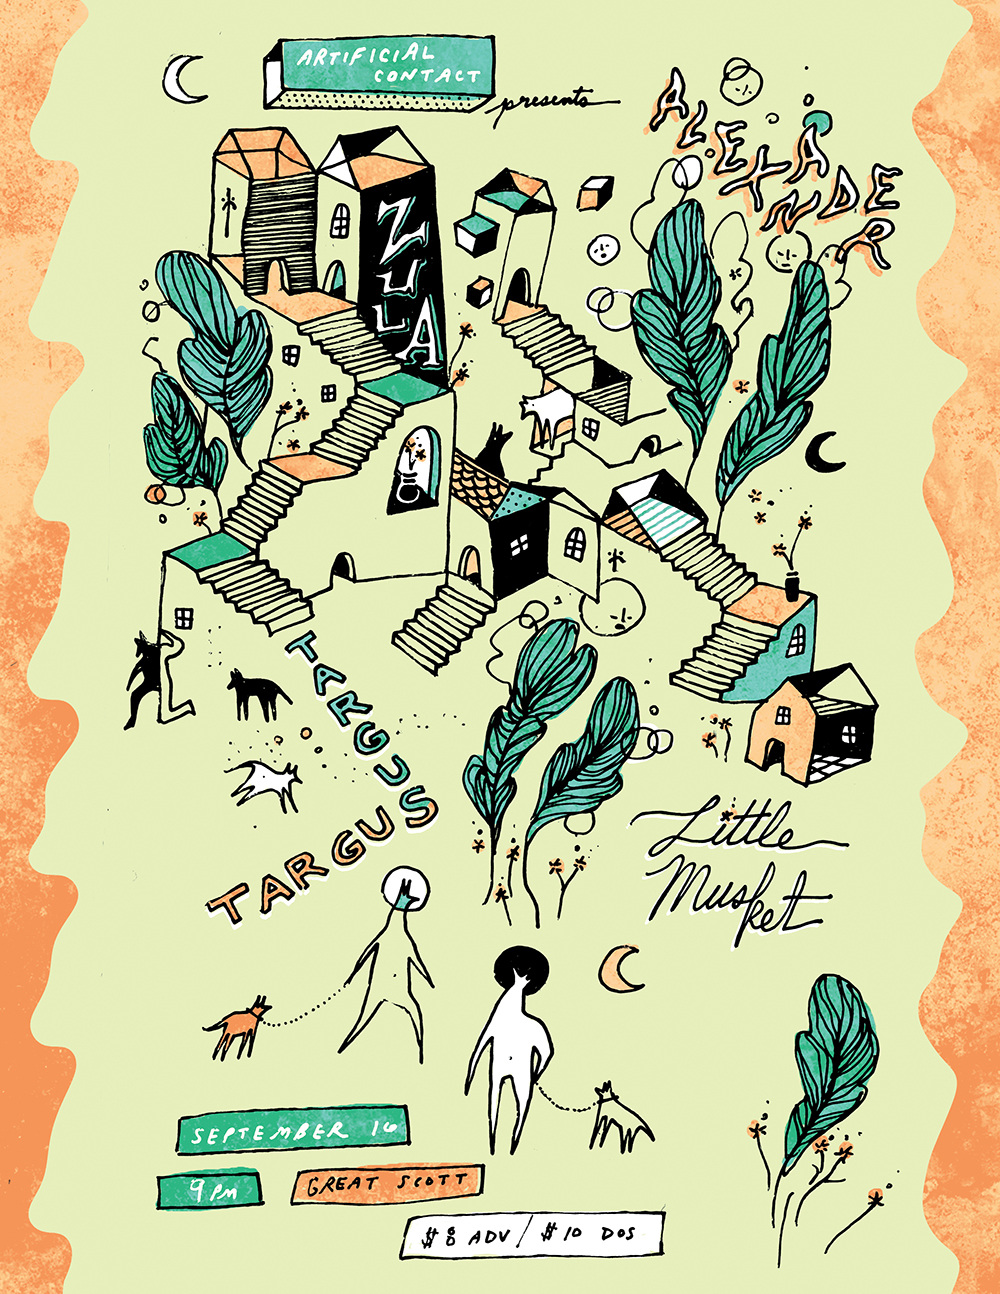 ARTIFICIAL
CONTACT
presents
ALEXANDER
ZULA
TARGUS
TARGUS
Little
Musket
SEPTEMBER 16
9 PM
GREAT SCOTT
$8 ADV / $10 DOS